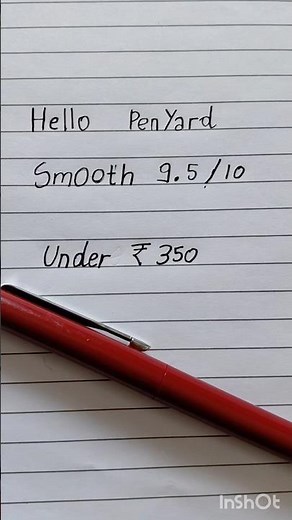 Hello PenYard
Smooth 9.5/10
Under ₹ 350
InShOt